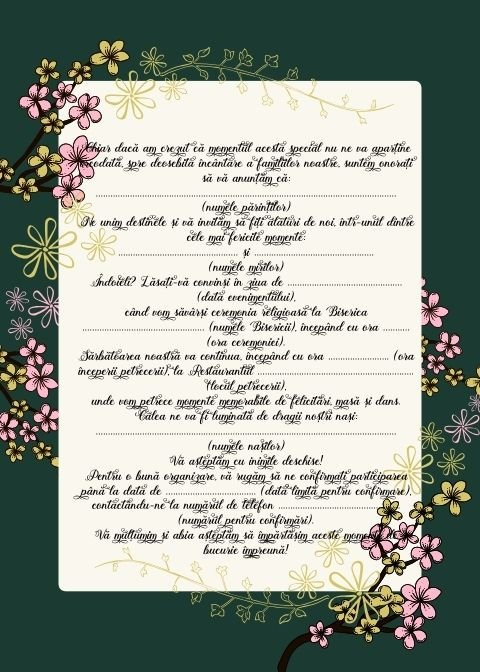 Chiar dacă am crezut că momentul acesta special nu ne va aparține
niciodată, spre deosebita încântare a familiilor noastre, suntem onorați
să vă anunțăm că:
................................................................
(numele părinților)
Ne unim destinele și vă invităm să fiți alături de noi, într-unul dintre
cele mai fericite momente:
........................................ și ........................................
(numele mirilor)
Îndoieli? Lăsați-vă convinși în ziua de ........................................
(data evenimentului),
când vom săvârși ceremonia religioasă la Biserica
........................................ (numele Bisericii), începând cu ora ..........
(ora ceremoniei).
Sărbătoarea noastră va continua, începând cu ora .................... (ora
începerii petrecerii), la Restaurantul ........................................
(locul petrecerii),
unde vom petrece momente memorabile de felicitări, masă și dans.
Calea ne va fi luminată de dragii noștri nași:
................................................................
(numele nașilor)
Vă așteptăm cu inimile deschise!
Pentru o bună organizare, vă rugăm să ne confirmați participarea
până la data de .............................. (data limită pentru confirmare),
contactându-ne la numărul de telefon ........................................
(numărul pentru confirmări).
Vă mulțumim și abia așteptăm să împărtășim aceste momente de
bucurie împreună!